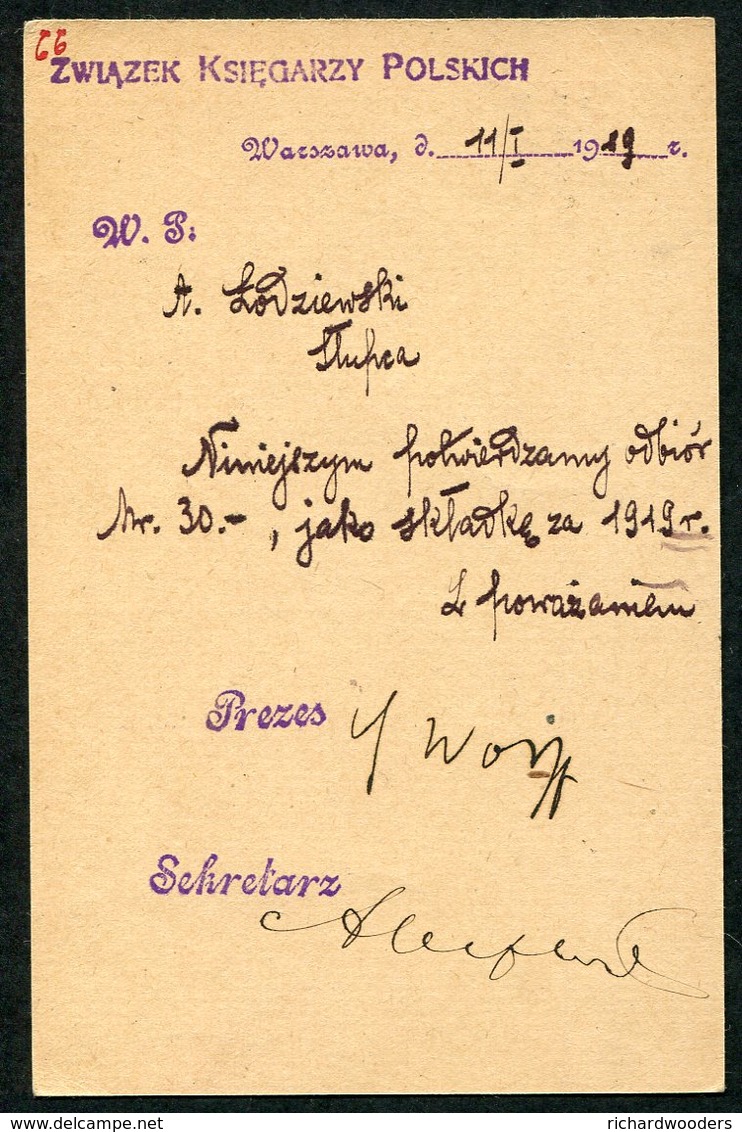 66
ZWIĄZEK KSIĘGARZY POLSKICH
Warszawa, d. 11/I 1919 r.
W. P:
A. Łodziewski
Słupca
Niniejszym potwierdzamy odbiór
Mr. 30.- , jako składkę za 1919 r.
Z poważaniem
Prezes
Sekretarz
delcampe.net
richardwooders